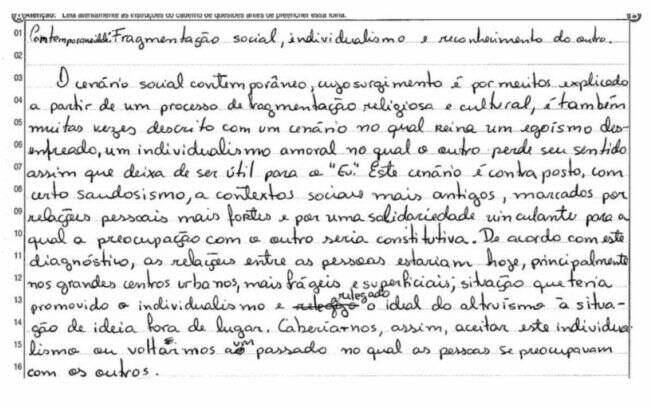 Atenção: Leia atentamente as instruções do caderno de questões antes de preencher essa folha.
01 Contemporaneidade: Fragmentação social, individualismo e reconhecimento do outro.
02
03 O cenário social contemporâneo, cujo surgimento é por muitos explicado
04 a partir de um processo de fragmentação religiosa e cultural, é também
05 muitas vezes descrito com um cenário no qual reina um egoísmo des-
06 enfreado, um individualismo amoral no qual o outro perde seu sentido
07 assim que deixa de ser útil para o "Eu". Este cenário é contraposto, com
08 certo saudosismo, a contextos sociais mais antigos, marcados por
09 relações pessoais mais fortes e por uma solidariedade vinculante para a
10 qual a preocupação com o outro seria constitutiva. De acordo com este
11 diagnóstico, as relações entre as pessoas estariam hoje, principalmente
12 nos grandes centros urbanos, mais frágeis e superficiais; situação que teria
13 promovido o individualismo e relegado o ideal do altruísmo à situa-
14 ção de ideia fora de lugar. Caberia-nos, assim, aceitar este individua
15 lismo ou voltarmos a um passado no qual as pessoas se preocupavam
16 com os outros.